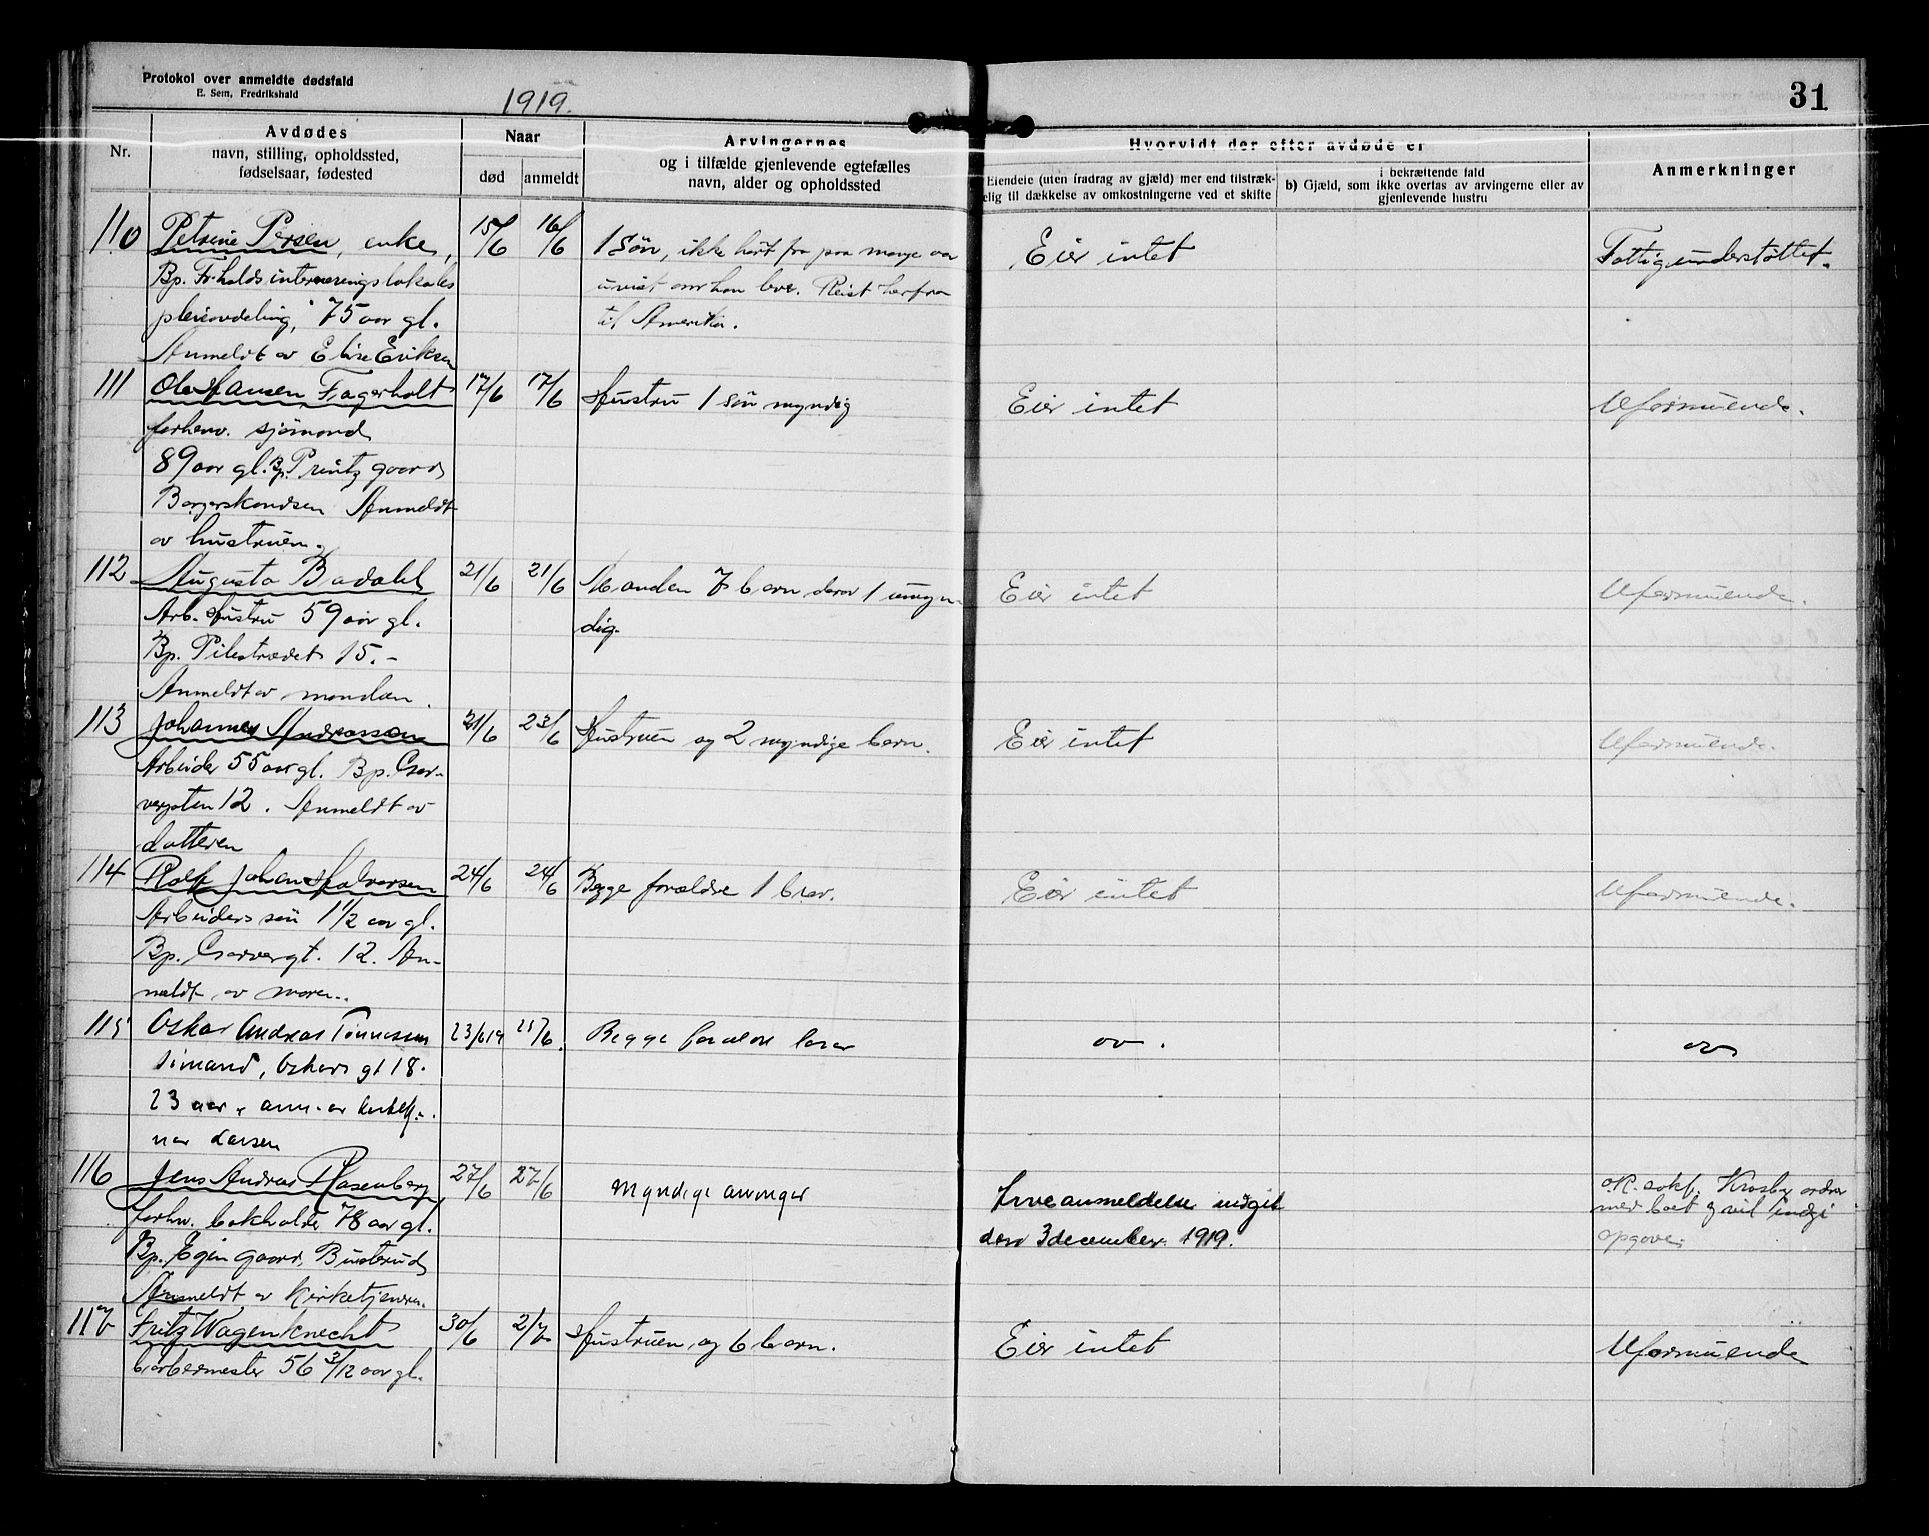 Protokol over anmeldte dødsfald
E. Sem, Fredrikshald
1919.
31
Nr.
Avdødes
navn, stilling, opholdssted,
fødselsaar, fødested
Naar
død
anmeldt
Arvingernes
og i tilfælde gjenlevende egtefælles
navn, alder og opholdssted
Hvorvidt der efter avdøde er
Eiendele (uten fradrag av gjæld) mer end tilstræk-
elig til dækkelse av omkostningerne ved et skifte
i bekræftende fald
b) Gjæld, som ikke overtas av arvingerne eller av
gjenlevende hustru
Anmerkninger
110 Petrine Persen, enke, 15/6 16/6 1 søn, ikke hørt fra paa mange aar Eier intet Fattigunderstøttet.
Bp. Fr.halds interneringslokales uvist om han lever. Reist herfra
pleieavdeling, 75 aar gl. til Amerika.
Anmeldt av Elise Eriksen
111 Ole Hansen Fagerholt 17/6 17/6 Hustru 1 søn myndig Eier intet Uformuende.
forhenv. sjømand
89 aar gl. Bp. Printz gaard
Anmeldt
av hustruen.
112 Augusta Badahl 21/6 21/6 Manden 7 barn derav 1 umyn- Eier intet Uformuende.
Arb. Hustru 59 aar gl. dig.
Bp. Pilestrædet 15.-
Anmeldt av manden.
113 Johannes Andreassen 21/6 23/6 Hustruen og 2 myndige barn. Eier intet Uformuende.
Arbeider 55 aar gl. Bp.
12. Anmeldt av
datteren
114 Rolf Johan Halvorsen 24/6 24/6 Begge forældre 1 bror. Eier intet Uformuende.
Arbeiders søn 1 1/2 aar gl.
Bp. 12. An-
meldt av moren.
115 Oskar Andreas Tønnessen 23/6 19 25/6. Begge forældre lever
simand, Oskars gt 18.
23 aar, anm. av
Larsen
116 Jens Andreas Rosenberg 27/6 27/6 Myndige arvinger Arveanmeldelse indgit
forhv. bokholder 78 aar gl. den 3 december 1919. med boet og vil indgi
Bp. Egen gaard, Busterud opgave.
Anmeldt av Kirketjeneren.
117 Fritz Wagenknecht 30/6 2/7 Hustruen og 6 barn. Eier intet Uformuende
barbermester 56 3/12 aar gl.